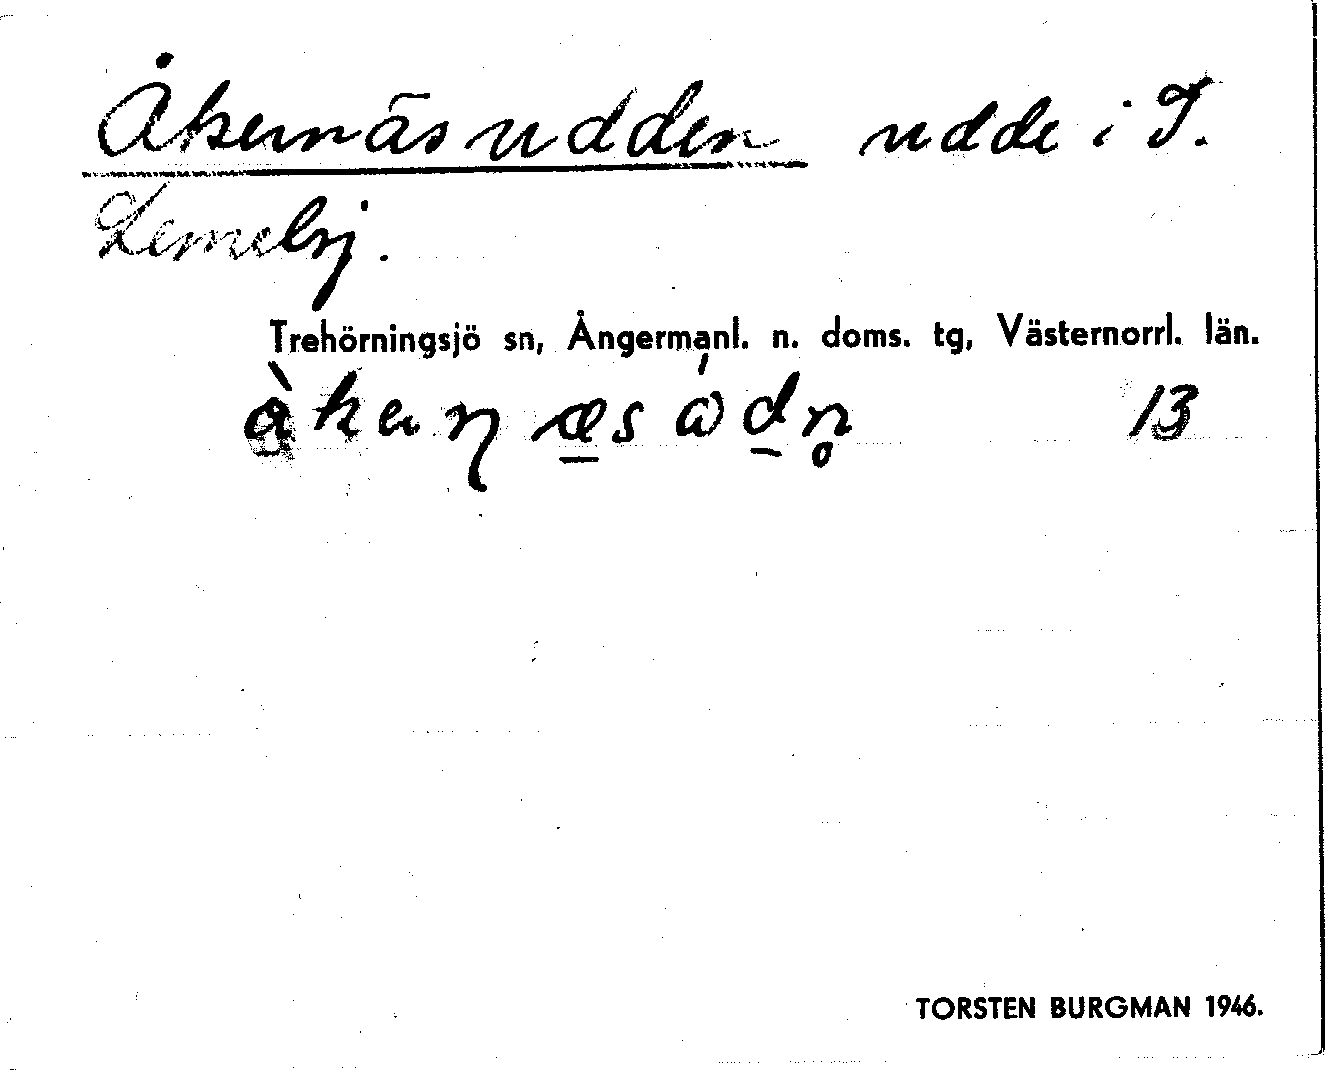 Åkernäsudden udde i T.
Lemesj.
Trehörningsjö sn, Ångermanl. n. doms. tg, Västernorrl. län.
13
TORSTEN BURGMAN 1946.